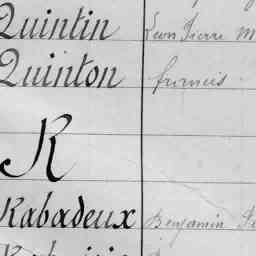 Quintin Léon Pierre M
Quinton francis
R
Rabadeux Benjamin